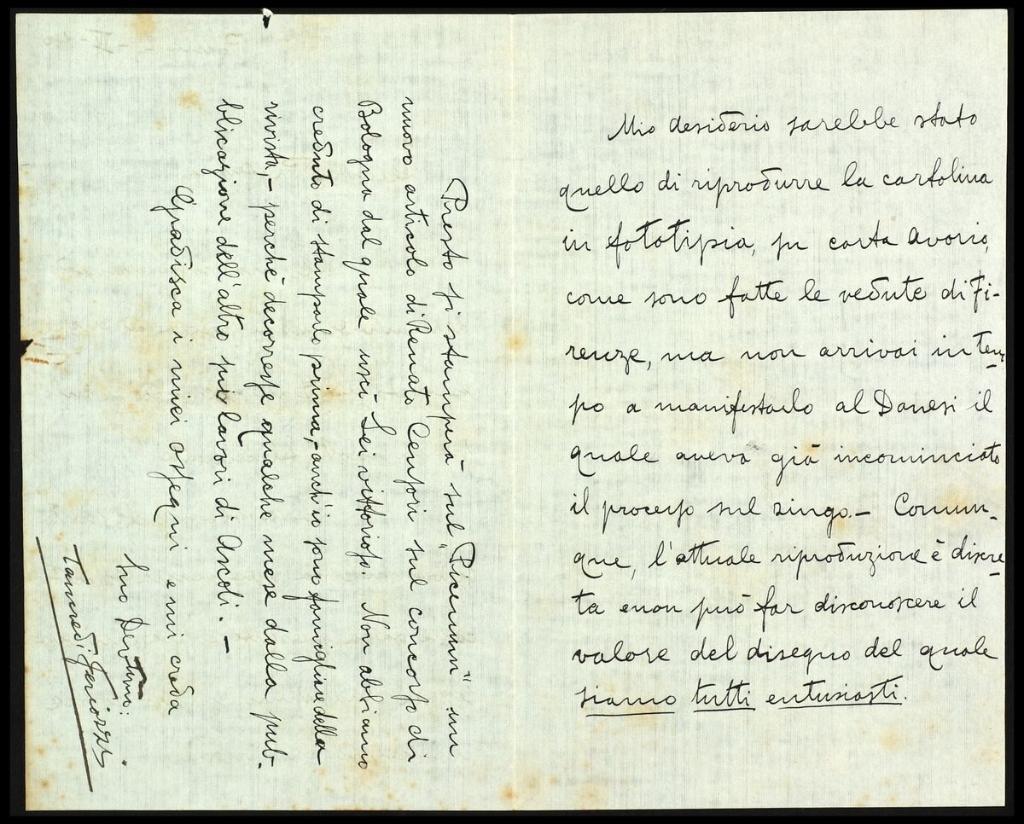 Mio desiderio sarebbe stato
quello di riprodurre la cartolina
in fototipia, su carta avorio,
come sono fatte le vedute di Fi-
renze, ma non arrivai in tem-
po a manifestarlo al Danesi il
quale aveva già incominciato
il processo sul zingo. – Comun-
que, l'attuale riproduzione è discre-
ta e non può far disconoscere il
valore del disegno del quale
siamo tutti entusiasti.
Presto si stamperà sul "Picenum" un
nuovo articolo di Renato Censori sul concorso di
Bologna dal quale uscì Lei vittorioso. Non abbiamo
creduto di stamparlo prima, – anch'io sono famigliare della
rivista, – perché decorresse qualche mese dalla pub-
blicazione dell'altro sui lavori di Ascoli. –
Gradisca i miei ossequi e mi creda
Suo Dev.mo:
Tancredi